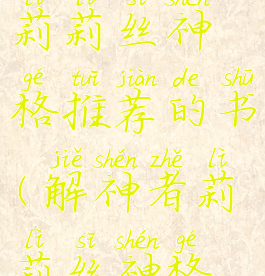 lì lì sī shén
莉莉丝神
gé tuī jiàn de shū
格推荐的书
jiě shén zhě lì
(解神者莉
lì sī shén gé
莉丝神格